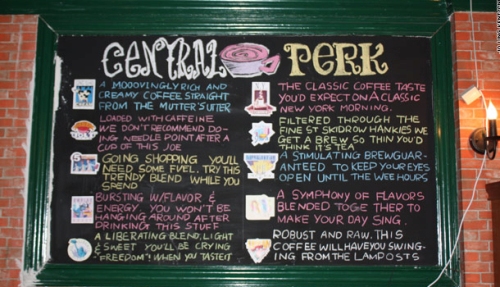 CENTRAL PERK
A MOOOVINGLY RICH AND
CREAMY COFFEE STRAIGHT
FROM THE MUTTER'S UTER
LOADED WITH CAFFEINE
WE DON'T RECOMMEND DO-
ING NEEDLE POINT AFTER A
CUP OF THIS JOE
GOING SHOPPING YOU'LL
NEED SOME FUEL. TRY THIS
TRENDY BLEND WHILE YOU
SPEND
BURSTING W/FLAVOR &
ENERGY. YOU WON'T BE
HANGING AROUND AFTER
DRINKING THIS STUFF
A LIBERATING BLEND, LIGHT
& SWEET YOU'LL BE CRYING
"FREEDOM"! WHEN YOU TASTE IT
THE CLASSIC COFFEE TASTE
YOU'D EXPECT ON A CLASSIC
NEW YORK MORNING.
FILTERED THROUGH THE
FINEST SKIDROW HANKIES WE
GET A BREW SO THIN YOU'D
THINK IT'S TEA
A STIMULATING BREW GUAR-
ANTEED TO KEEP YOUR EYES
OPEN UNTIL THE WEE HOURS
A SYMPHONY OF FLAVORS
BLENDED TOGETHER TO
MAKE YOUR DAY SING.
ROBUST AND RAW. THIS
COFFEE WILL HAVE YOU SWING-
ING FROM THE LAMPOSTS